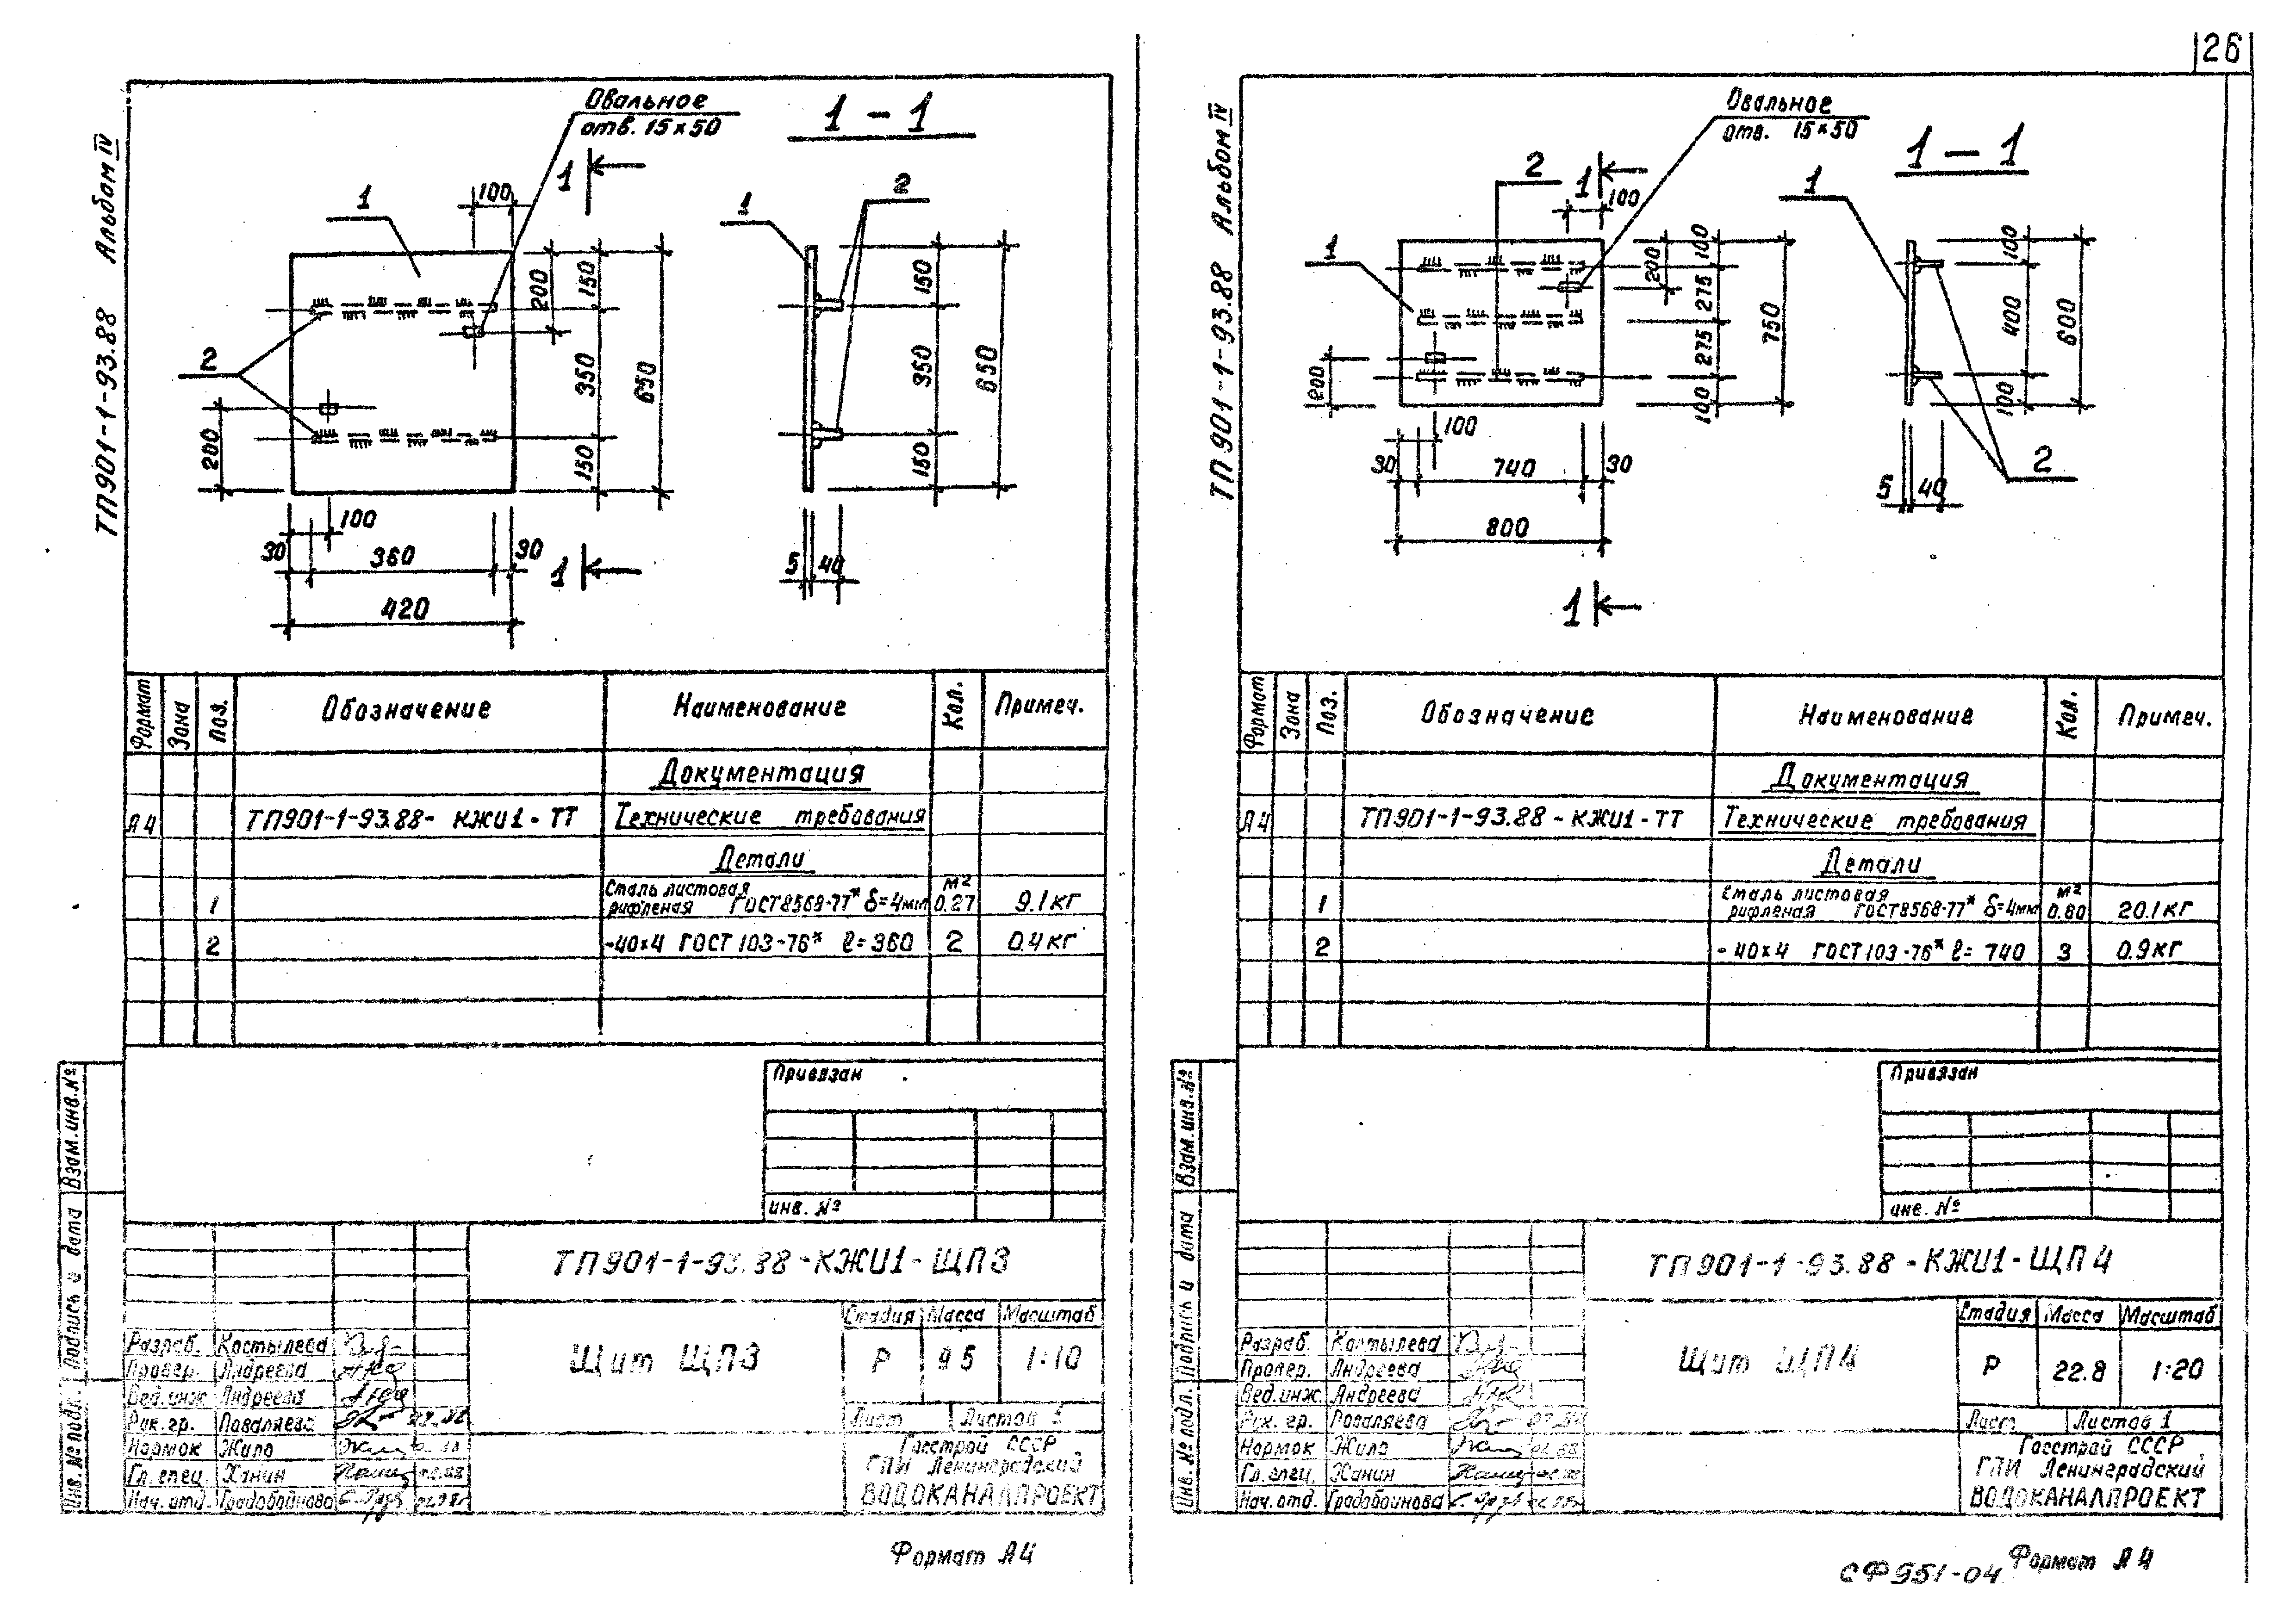 26
ТП901-1-93.88 Альбом IV
Овальное
отв. 15×50
1-1
1
1
100
200
150
350
150
650
2
200
100
30
360
30
420
1
1
2
150
350
150
650
5
40
Формат
Зона
Поз.
Обозначение
Наименование
Кол.
Примеч.
Документация
А4 ТП901-1-93.88-КЖИ1-ТТ Технические требования
Детали
1 Сталь листовая рифленая ГОСТ8568-77* δ=4мм м² 0.27 9.1кг
2 -40×4 ГОСТ 103-76* ℓ=360 2 0.4кг
Привязан
инв. №
Взам.инв.№
Подпись и дата
Инв. № подл.
ТП901-1-93.88-КЖИ1-ЩП3
Щит ЩП3
Стадия Масса Масштаб
Р 9.5 1:10
Лист Листов 1
Госстрой СССР
ГПИ Ленинградский
ВОДОКАНАЛПРОЕКТ
Разраб. Костылева
Провер. Андреева
Вед.инж Андреева
Рук.гр. Поваляева
Нормок Жило
Гл.спец. Ханин
Нач.отд. Градобойнова
Формат А4
ТП901-1-93.88 Альбом IV
Овальное
отв. 15×50
1-1
2
1
1
100
200
100
275
275
100
750
200
100
30
740
30
800
1
1
100
400
100
600
5
40
2
Формат
Зона
Поз.
Обозначение
Наименование
Кол.
Примеч.
Документация
А4 ТП901-1-93.88-КЖИ1-ТТ Технические требования
Детали
1 Сталь листовая рифленая ГОСТ8568-77* δ=4мм м² 0.60 20.1кг
2 -40×4 ГОСТ 103-76* ℓ=740 3 0.9кг
Привязан
инв. №
Взам.инв.№
Подпись и дата
Инв. № подл.
ТП901-1-93.88-КЖИ1-ЩП4
Щит ЩП4
Стадия Масса Масштаб
Р 22.8 1:20
Лист Листов 1
Госстрой СССР
ГПИ Ленинградский
ВОДОКАНАЛПРОЕКТ
Разраб. Костылева
Провер. Андреева
Вед.инж. Андреева
Рук. гр. Поваляева
Нормок Жило
Гл.спец. Ханин
Нач.отд. Градобойнова
Формат А4
СФ951-04